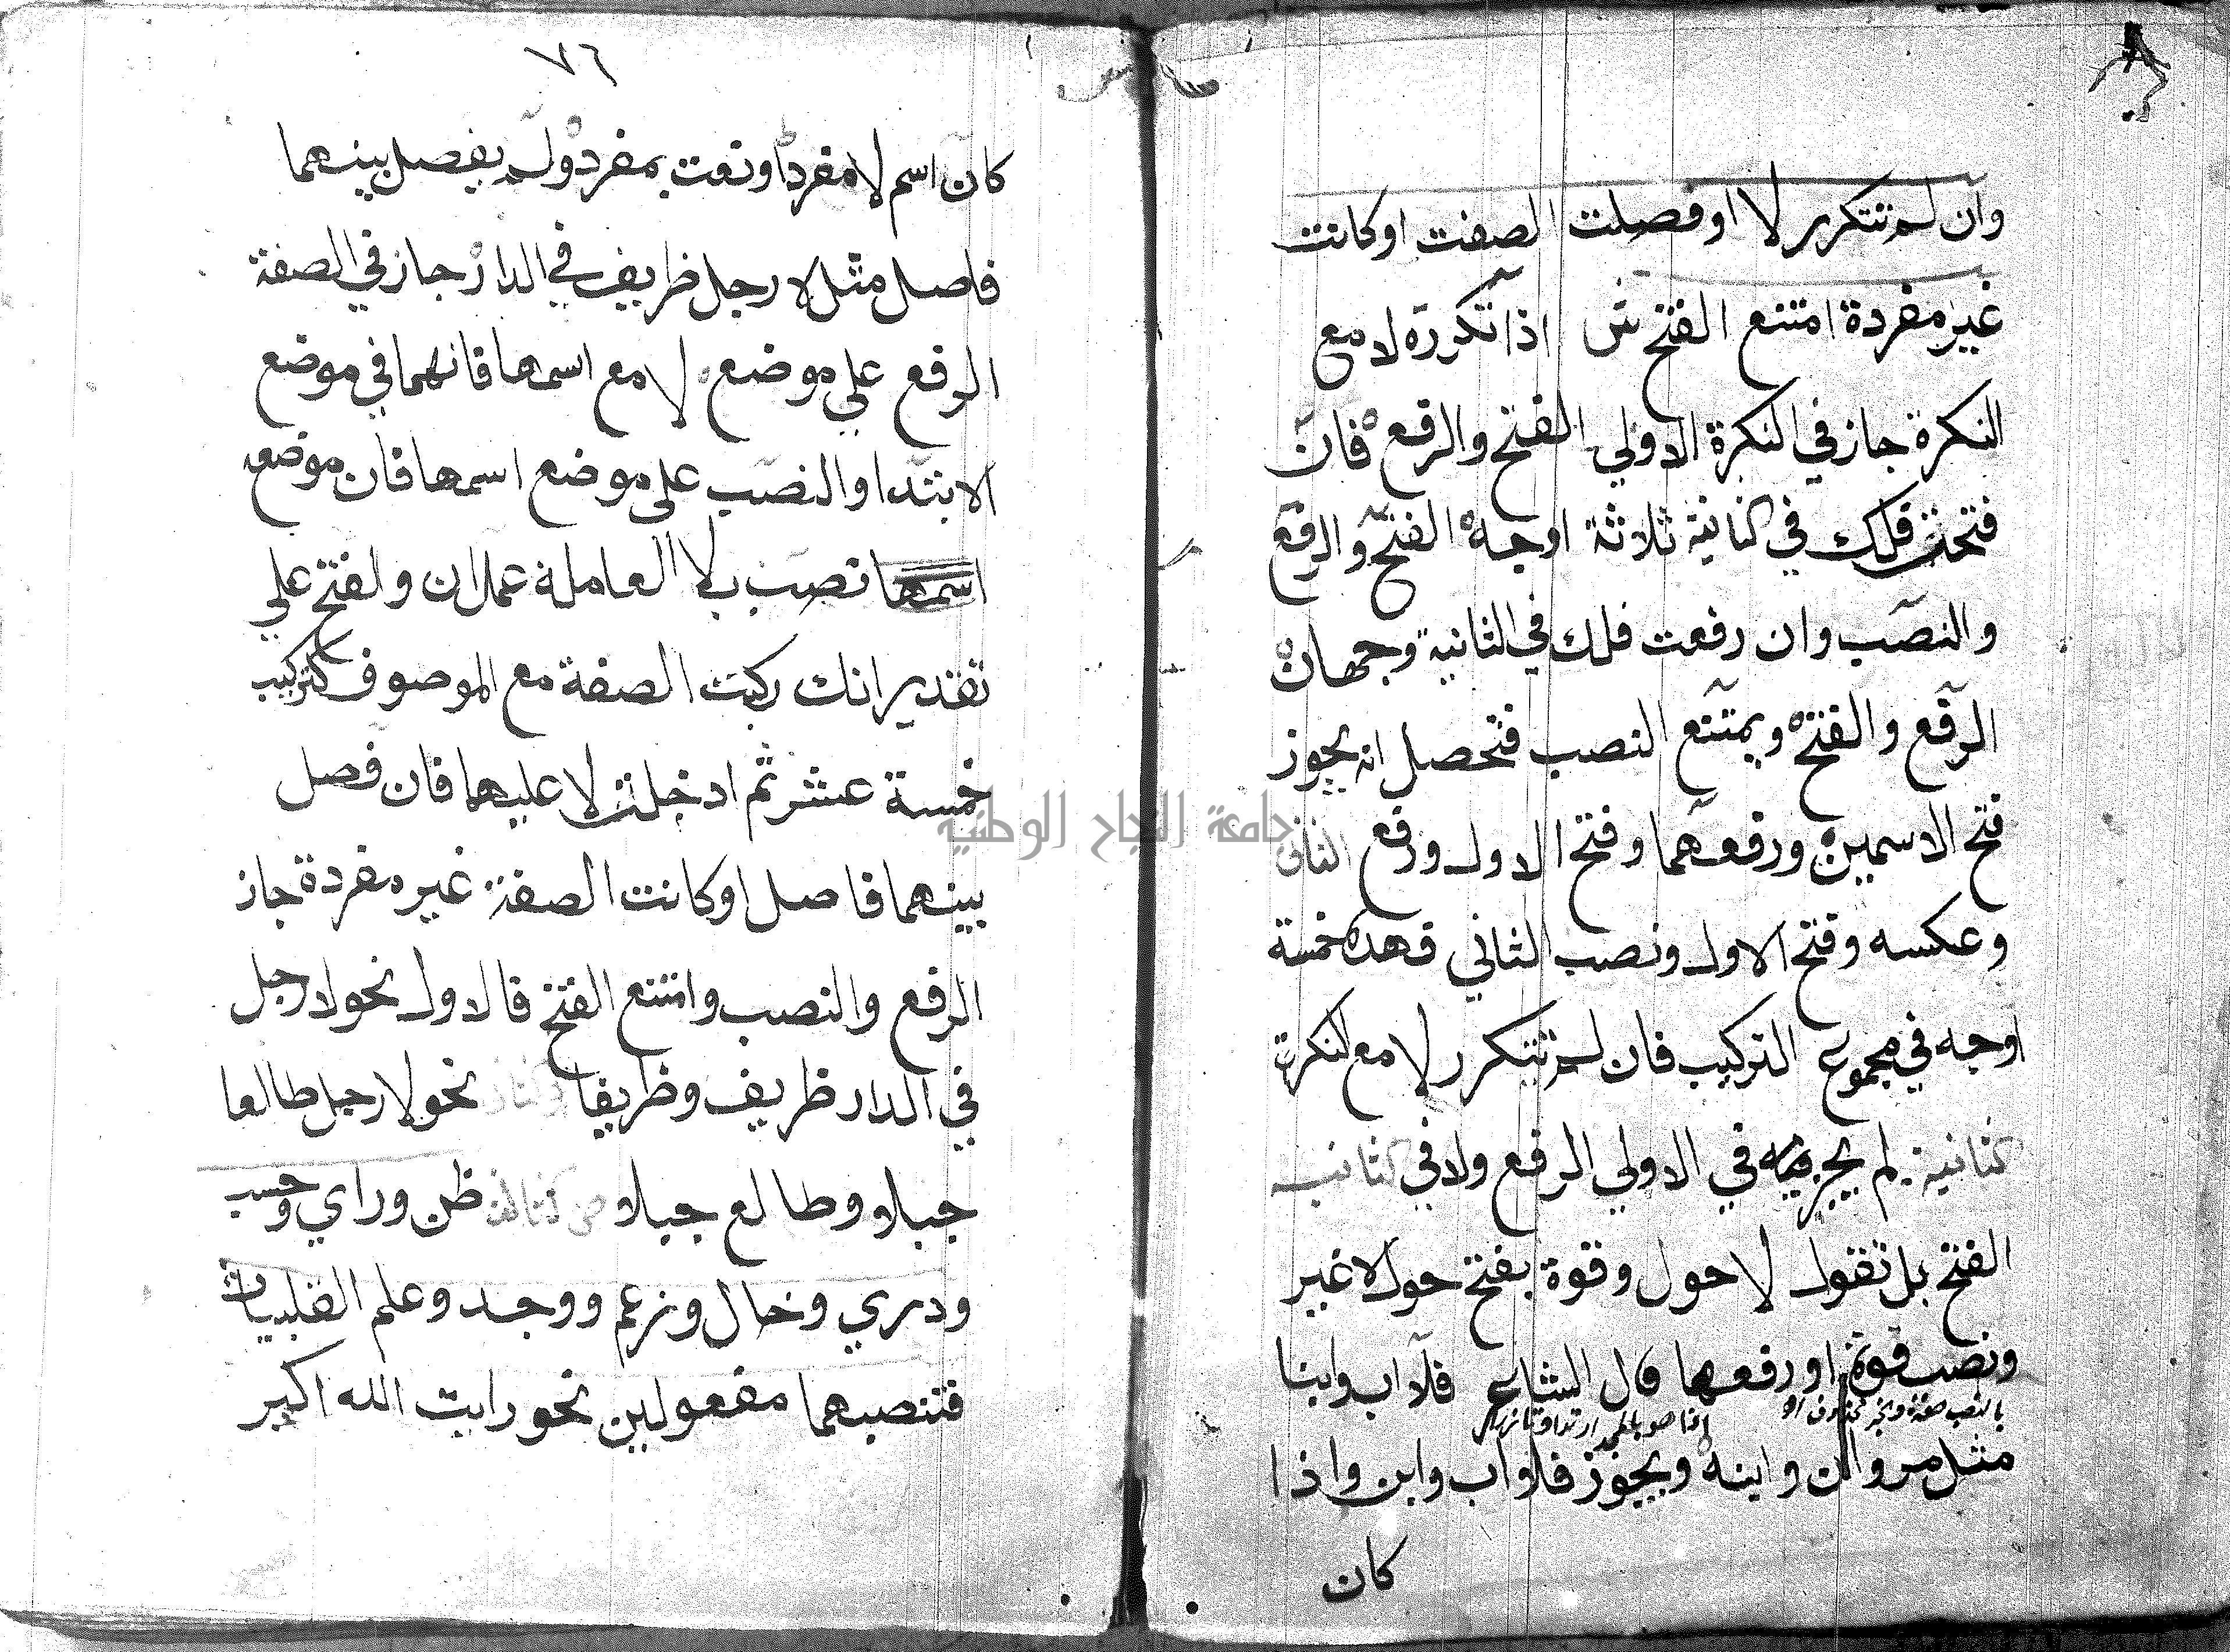 وان لم تتكرر لا او فصلت الصفت او كانت
غير مفردة امتنع الفتح ش اذا تكرره لا مع
النكرة جاز في النكرة الاولي الفتح والرفع فان
فتحت فلك في الثانية ثلاثة اوجه الفتح والرفع
والنصب وان رفعت فلك في الثانية وجهان
الرفع والفتح ويمتنع النصب فتحصل انه يجوز
فتح الاسمين ورفعهما وفتح الاول ورفع الثاني
وعكسه وفتح الاول ونصب الثاني فهذه خمسة
اوجه في مجموع التركيب فان لم تتكرر لا مع النكرة
الثانية لم يجز في الاولي الرفع ولا في الثانية
الفتح بل تقول لا حول وقوة بفتح حول لا غير
ونصب قوة او رفعها قال الشاعر فلا اب وابنا
بالنصب صفة وخبر محذوف او اذا هو بالمجد ارتدا وتازرا
مثل مروان وابنه ويجوز فلا اب وابن واذا
كان
٧٦
كان اسم لا مفردا ونعت بمفرد ولم يفصل بينهما
فاصل مثل لا رجل ظريف في الدار جاز في الصفة
الرفع علي موضع لا مع اسمها فانهما في موضع
الابتدا والنصب علي موضع اسمها فان موضعه
نصب بلا العاملة عمل ان والفتح علي
تقدير انك ركبت الصفة مع الموصوف كتركيب
خمسة عشر ثم ادخلت لا عليها فان فصل
بينهما فاصل او كانت الصفة غير مفردة جاز
الرفع والنصب وامتنع الفتح فالاول نحو لا رجل
في الدار ظريف وظريفا نحو لا رجل طالعا
جبلا وطالع جبلا ص ظن وراي وحسب
ودري وخال وزعم ووجد وعلم القلبيات
فتنصبهما مفعولين نحو رايت الله اكبر
جامعة النجاح الوطنية